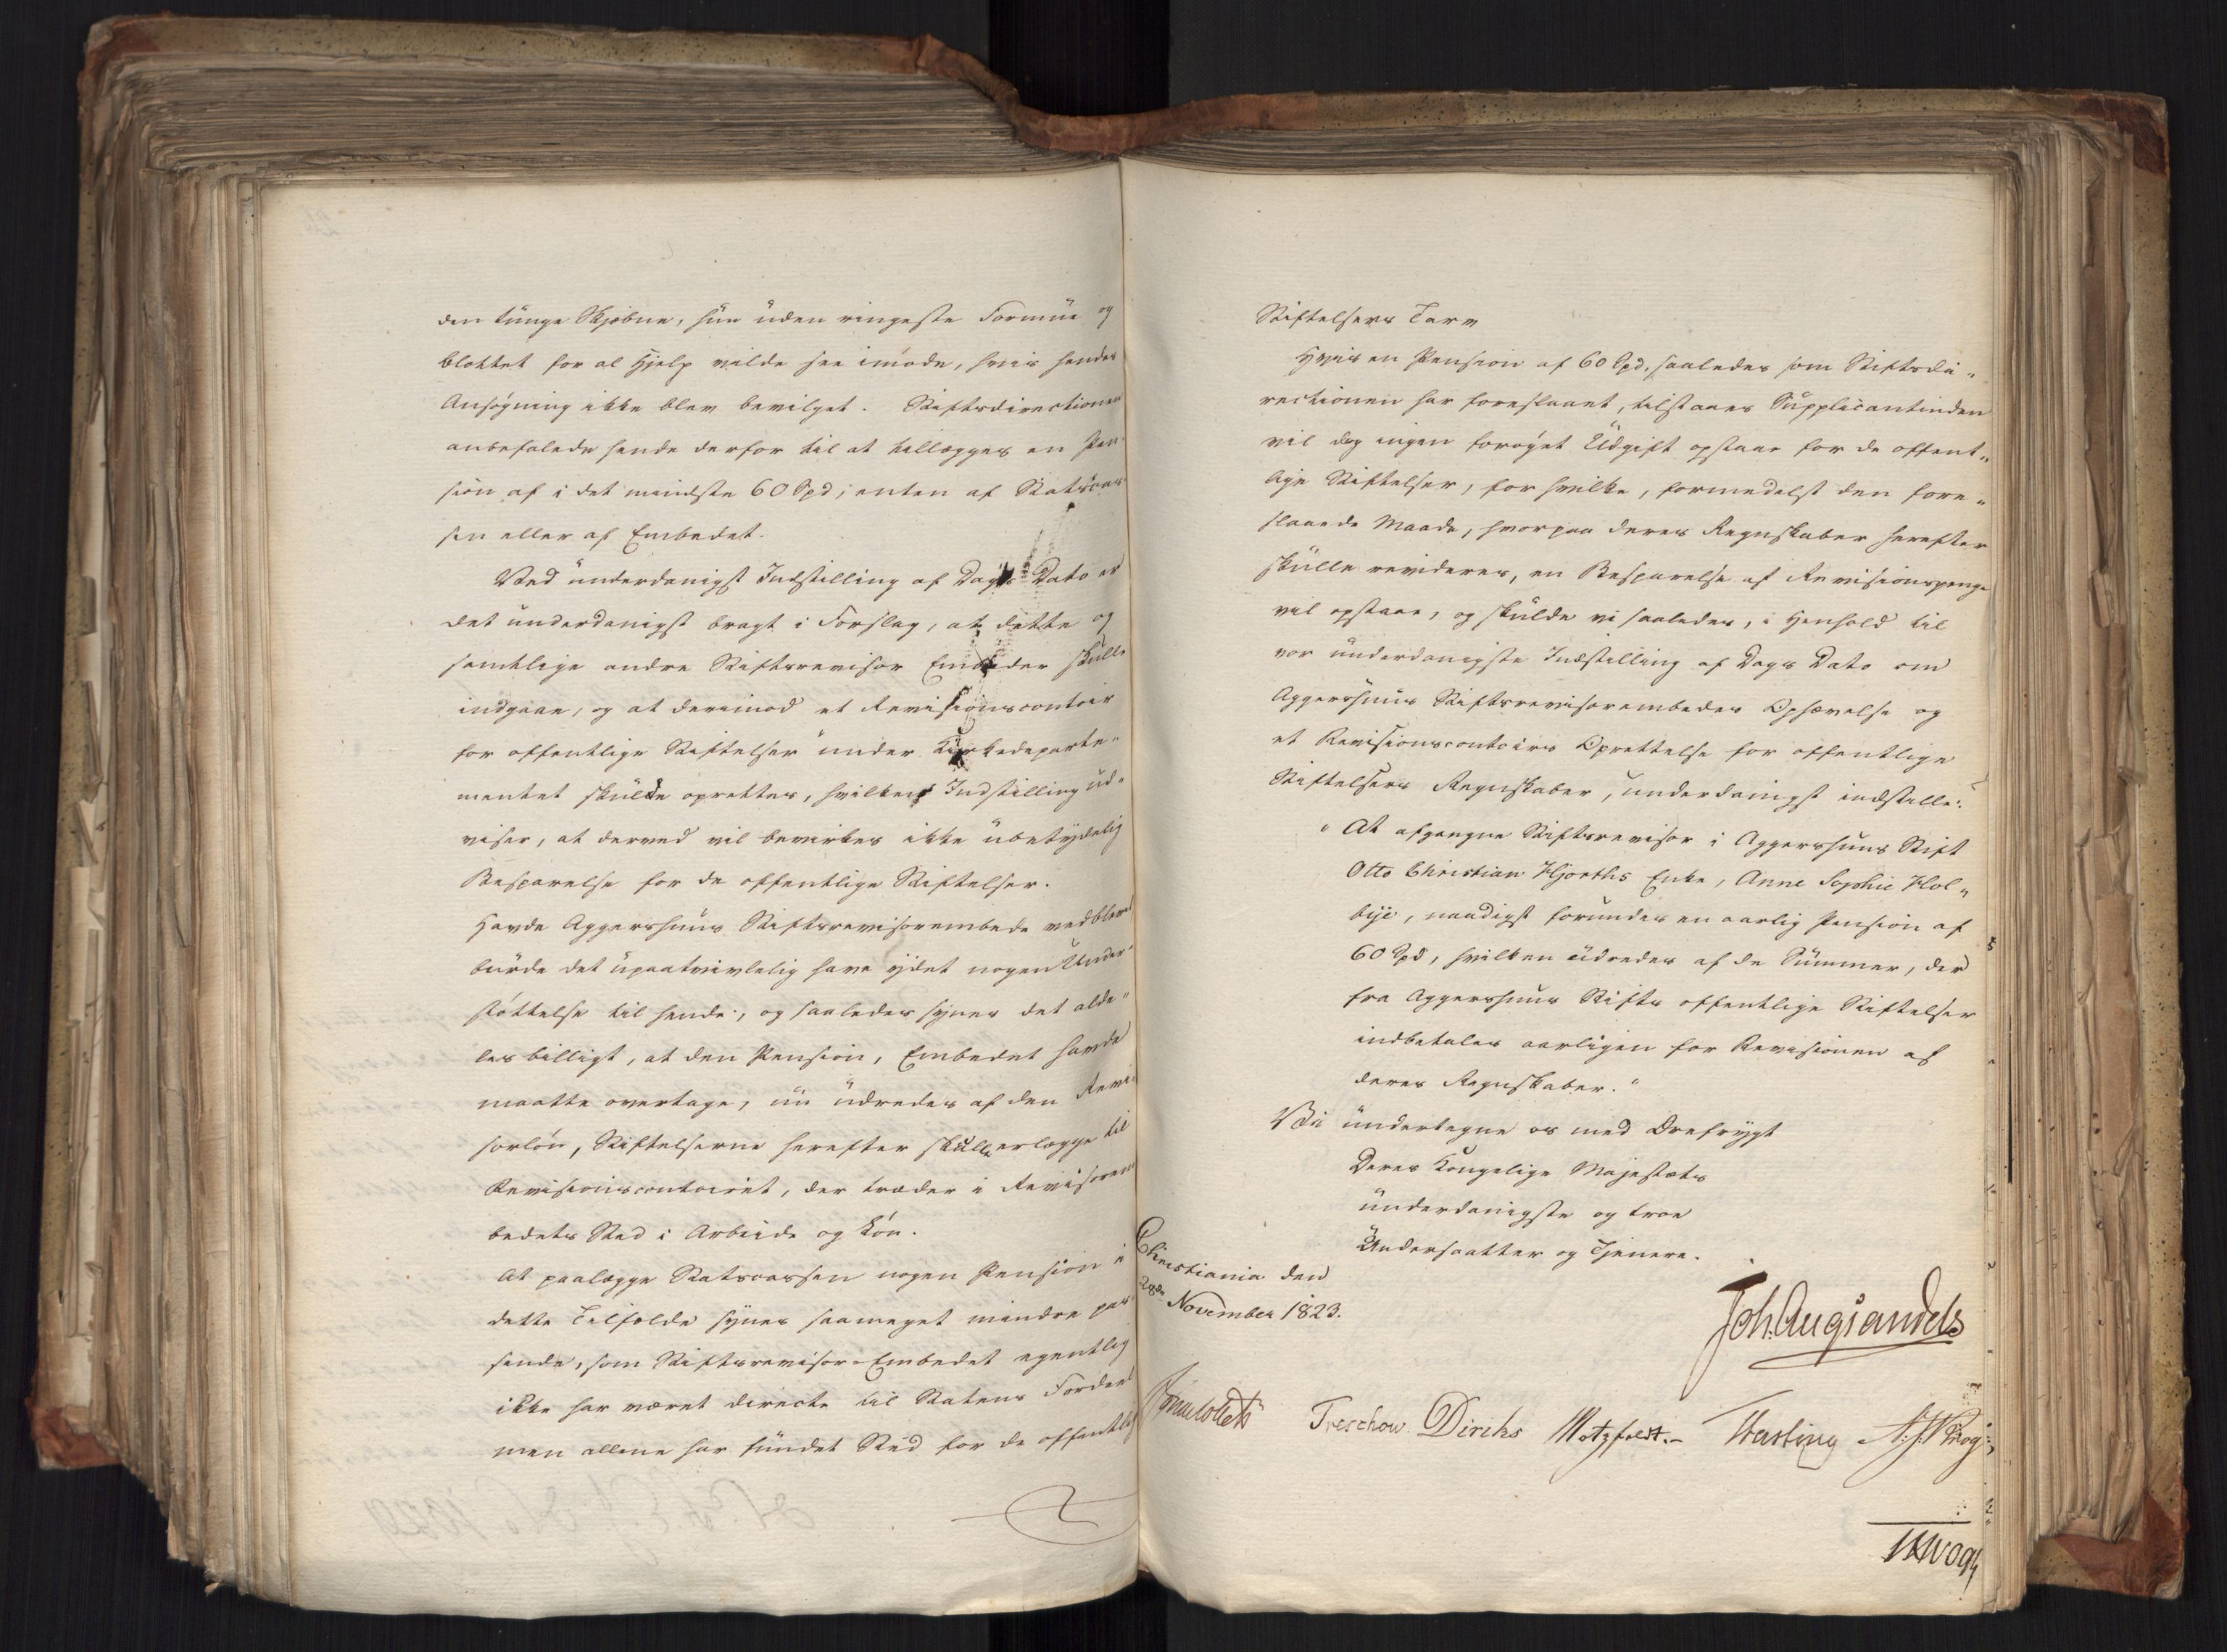 den tunge Skjebne, hun uden ringeste Formue og
blottet for al Hjelp vilde see imøde, hvis hendes
Ansøgning ikke blev bevilget. Stiftsdirectionen
anbefalede hende derfor til at tillægges en Pen-
sion af i det mindste 60 Spd, enten af Statscas-
sen eller af Embedet.
Ved underdanigst Indstilling af Dags Dato er
det underdanigst bragt i Forslag, at dette og
samtlige andre Stiftsrevisor Embeder skulle
indgaae, og at derimod et Revisionscontoir
for offentlige Stiftelser under Kirkedeparte-
mentet skulde oprettes, hvilken Indstilling ud-
viser, at derved vil bevirkes ikke ubetydelig
Besparelse for de offentlige Stiftelser.
Havde Aggershuus Stiftsrevisorembede vedblevet
burde det upaatvivlelig have ydet nogen Under-
støttelse til hende, og saaledes synes det alde-
les billigt, at den Pension, Embedet havde
maatte overtage, nu udredes af den Revi-
sorløn, Stiftelserne herefter skulle erlægge til
Revisionscontoiret, der træder i Revisorem-
bedets Sted i Arbeide og Løn.
At paalægge Statscassen nogen Pension i
dette Tilfælde synes saameget mindre pas-
sende, som Stiftsrevisor-Embedet egentlig
ikke har været directe til Statens Fordeel
men allene har fundet Sted for de offentlige
Stiftelsers Tarv
Hvis en Pension af 60 Spd. saaledes som Stiftsdi-
rectionen har foreslaaet, tilstaaes Supplicantinden
vil dog ingen forøget Udgift opstaae for de offent-
lige Stiftelser, for hvilke, formedelst den fore-
slaaede Maade, hvorpaa deres Regnskaber herefter
skulle revideres, en Besparelse af Revisionspenge
vil opstaae, og skulde vi saaledes, i Henhold til
vor underdanigste Indstilling af Dags Dato om
Aggershuus Stiftsrevisorembedes Ophævelse og
et Revisionscontoirs Oprettelse for offentlige
Stiftelsers Regnskaber, underdanigst indstille:
"At afgangne Stiftsrevisor i Aggershuus Stift
Otto Christian Hjorths Enke, Anne Sophie Hol-
bye, naadigst forundes en aarlig Pension af
60 Spd, hvilken udredes af de Summer, der
fra Aggershuus Stifts offentlige Stiftelser
indbetales aarligen for Revisionen af
deres Regnskaber."
Vi undertegne os med Ærefrygt
Deres Kongelige Majestæts
underdanigste og troe
Undersaatter og Tjenere.
Christiania den
28de November 1823.
Joh. Aug Sandels
Treschow Diriks Motzfeldt. Fasting